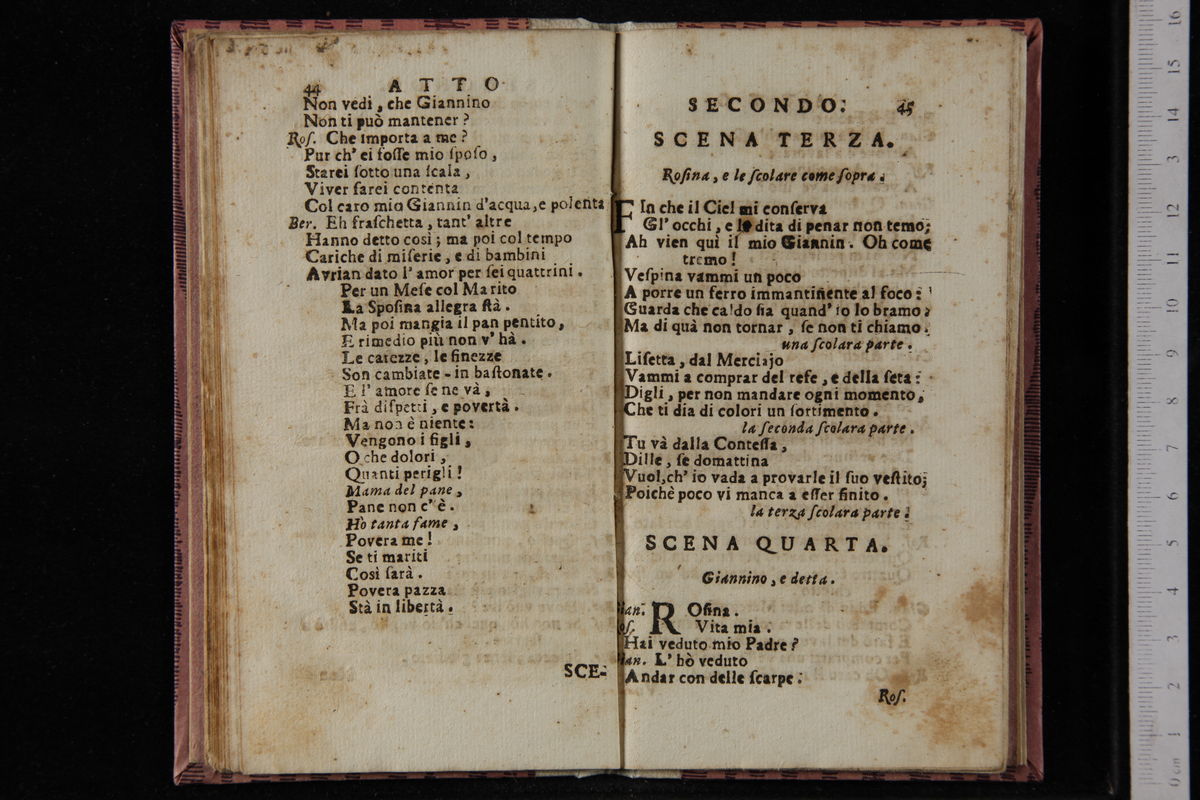 44 ATTO
Non vedi, che Giannino
Non ti può mantener?
Roſ. Che importa a me?
Pur ch' ei foſſe mio ſpoſo,
Starei ſotto una ſcala,
Viver ſarei contenta
Col caro mio Giannin d'acqua, e polenta
Ber. Eh fraſchetta, tant' altre
Hanno detto così; ma poi col tempo
Cariche di miſerie, e di bambini
Avrian dato l' amor per ſei quattrini.
Per un Meſe col Marito
La Spoſina allegra ſtà.
Ma poi mangia il pan pentito,
E rimedio più non v' hà.
Le carezze, le finezze
Son cambiate - in baſtonate.
E l' amore ſe ne và,
Frà diſpetti, e povertà.
Ma non è niente:
Vengono i figli,
O che dolori,
Quanti perigli!
Mama del pane,
Pane non c' è.
Hò tanta fame,
Povera me!
Se ti mariti
Così ſarà.
Povera pazza
Stà in libertà.
SCE-
SECONDO. 45
SCENA TERZA.
Roſina, e le ſcolare come ſopra.
FIn che il Ciel mi conſerva
Gl' occhi, e le dita di penar non temo;
Ah vien quì il mio Giannin. Oh come
tremo!
Veſpina vammi un poco
A porre un ferro immantinente al foco:
Guarda che caldo ſia quand' io lo bramo:
Ma di quà non tornar, ſe non ti chiamo.
una ſcolara parte.
Liſetta, dal Merciajo
Vammi a comprar del refe, e della ſeta:
Digli, per non mandare ogni momento,
Che ti dia di colori un ſortimento.
la ſeconda ſcolara parte.
Tu và dalla Conteſſa,
Dille, ſe domattina
Vuol, ch' io vada a provarle il ſuo veſtito;
Poichè poco vi manca a eſſer finito.
la terza ſcolara parte.
SCENA QUARTA.
Giannino, e detta.
ian. ROſina.
oſ. Vita mia.
Hai veduto mio Padre?
ian. L' hò veduto
Andar con delle ſcarpe.
Roſ.